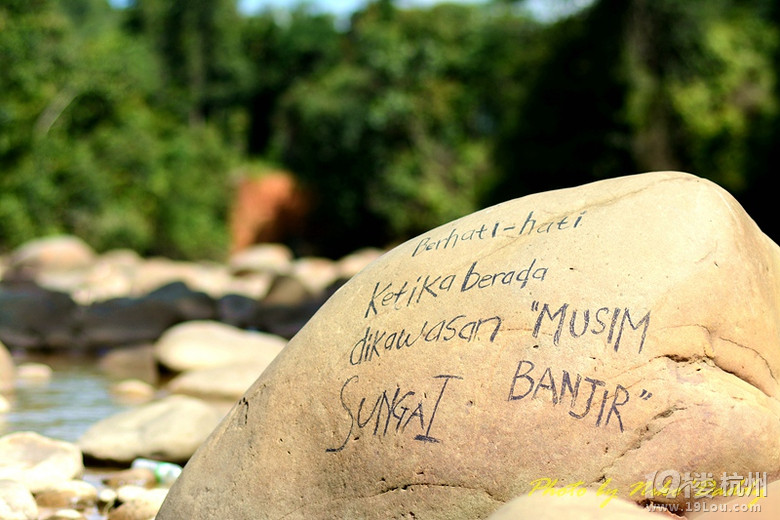 Berhati-hati
Ketika berada
dikawasan "MUSIM
SUNGAI BANJIR"
Photo by
19楼杭州
www.19lou.com